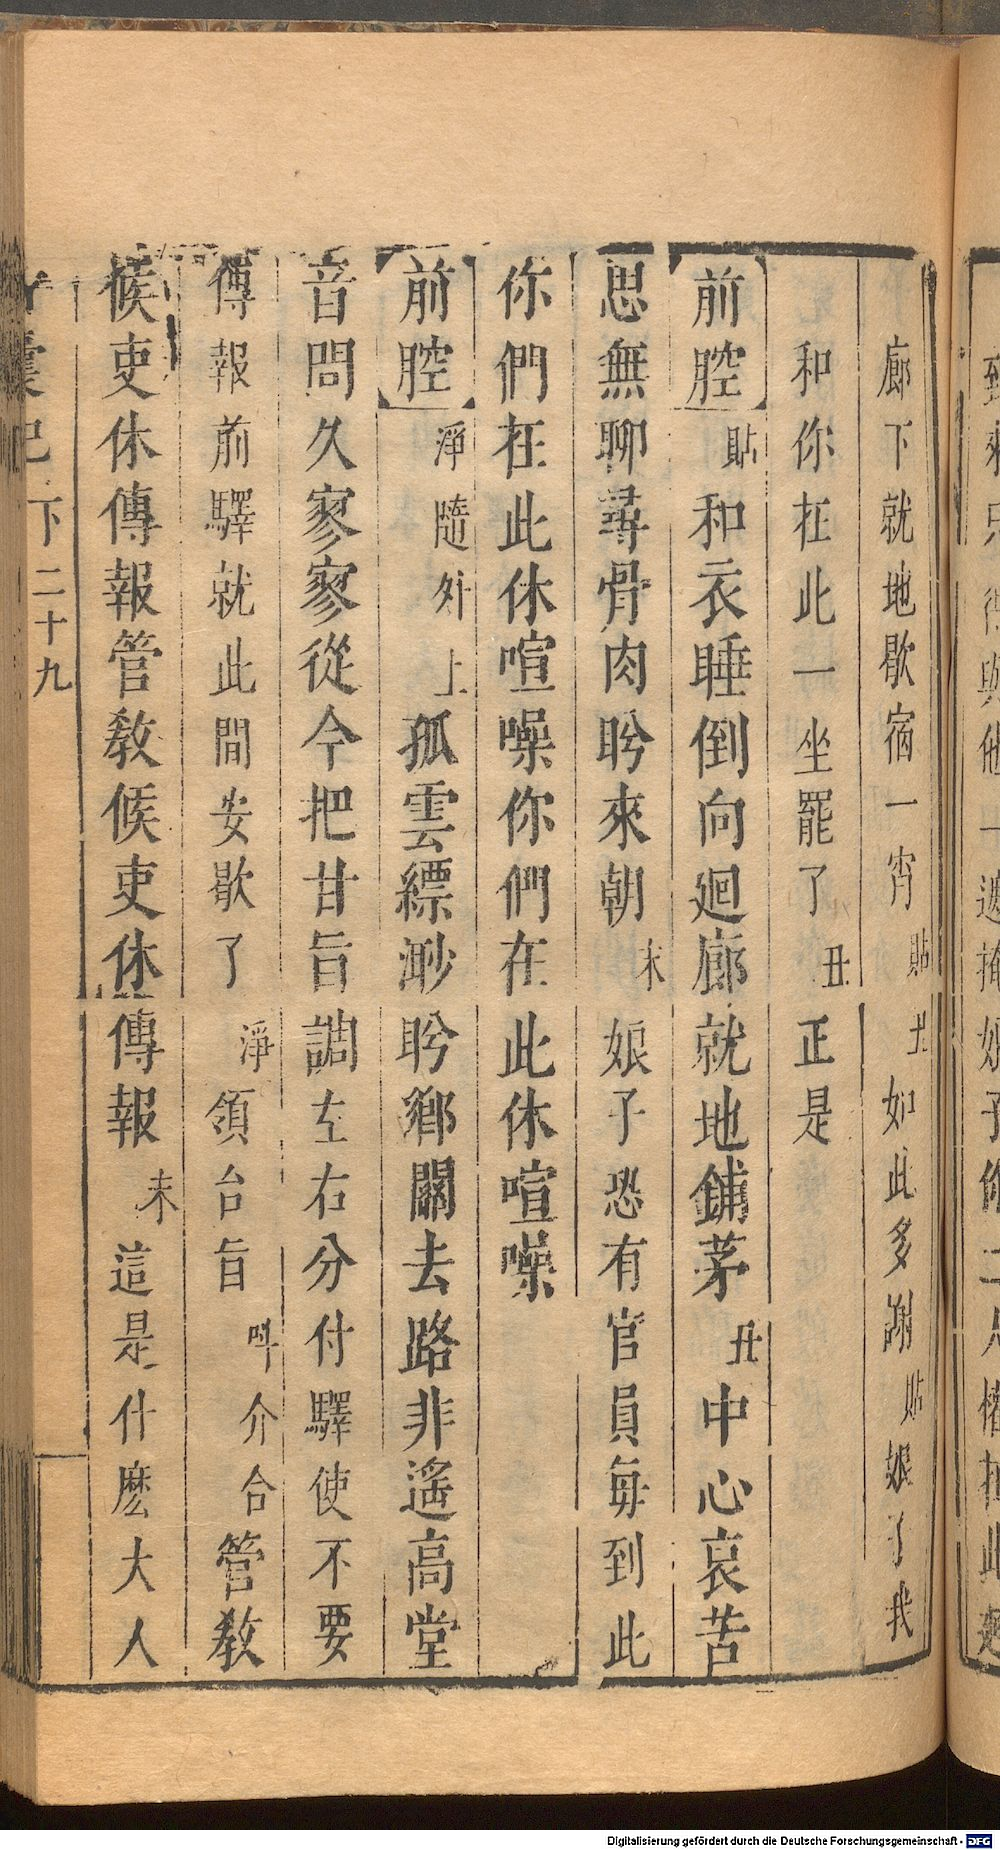 廊下就地歇宿一宵貼丑如此多謝貼娘子我
和你在此一坐罷了丑正是
前腔貼和衣睡倒向廻廊就地鋪茅丑中心哀苦
思無聊尋骨肉盻來朝末娘子恐有官員每到此
你們在此休喧噪你們在此休喧噪
前腔淨隨外上孤雲縹渺盻鄉關去路非遙高堂
音問久寥寥從今把甘旨調左右分付驛使不要
傳報前驛就此間安歇了淨領台旨叫介合管教
候吏休傳報管教候吏休傳報末這是什麽大人
囊記 下 二十九
Digitalisierung gefördert durch die Deutsche Forschungsgemeinschaft - DFG